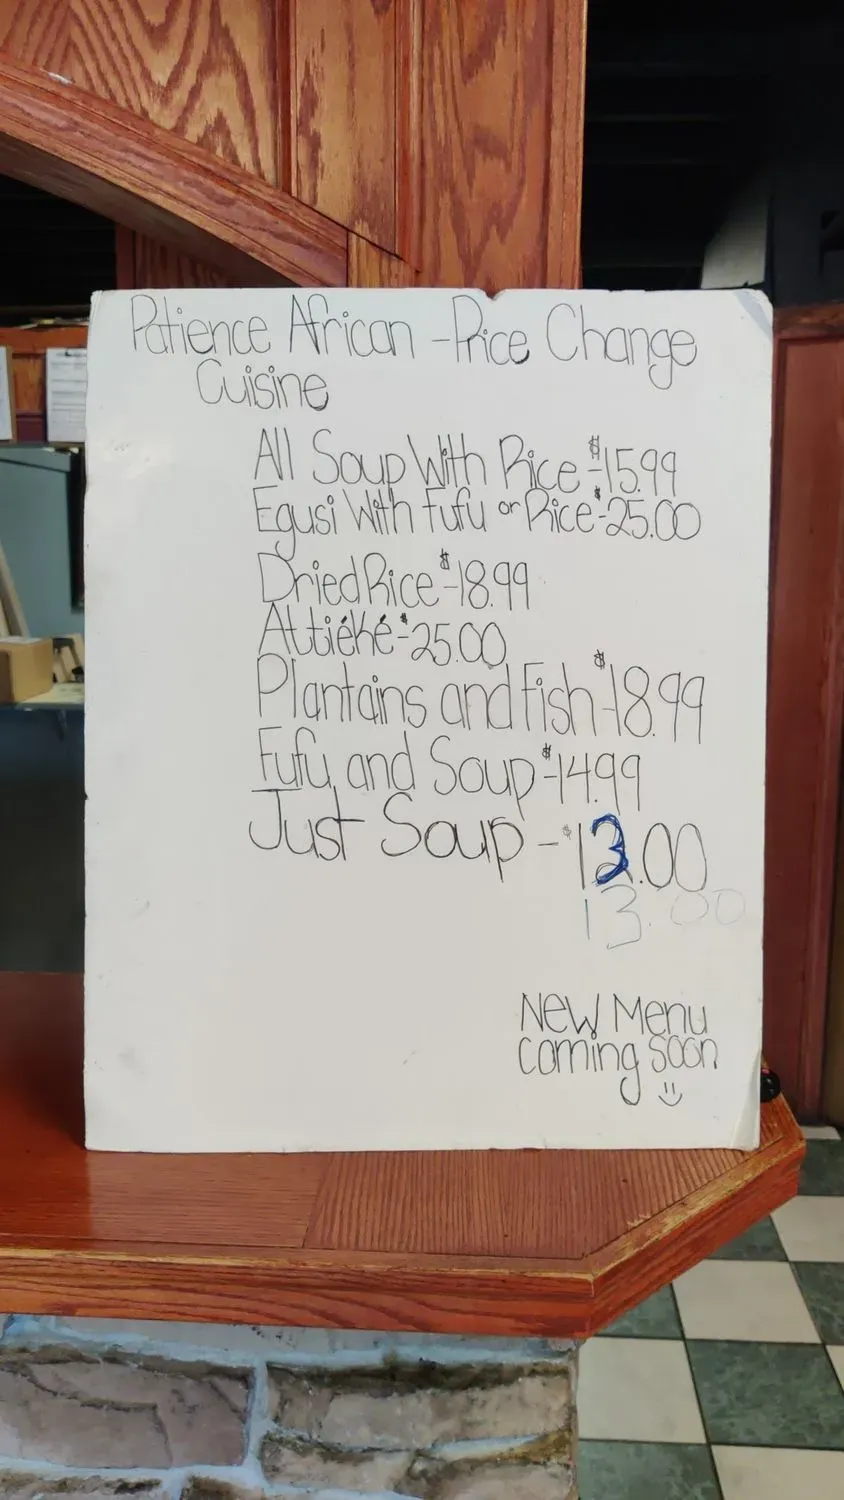 Patience African - Price Change
Cuisine
All Soup With Rice-$15.99
Egusi With Fufu or Rice-$25.00
Dried Rice-$18.99
Attiéké-$25.00
Plantains and Fish-$18.99
Fufu and Soup-$14.99
Just Soup - $13.00
13.00
New Menu
coming soon